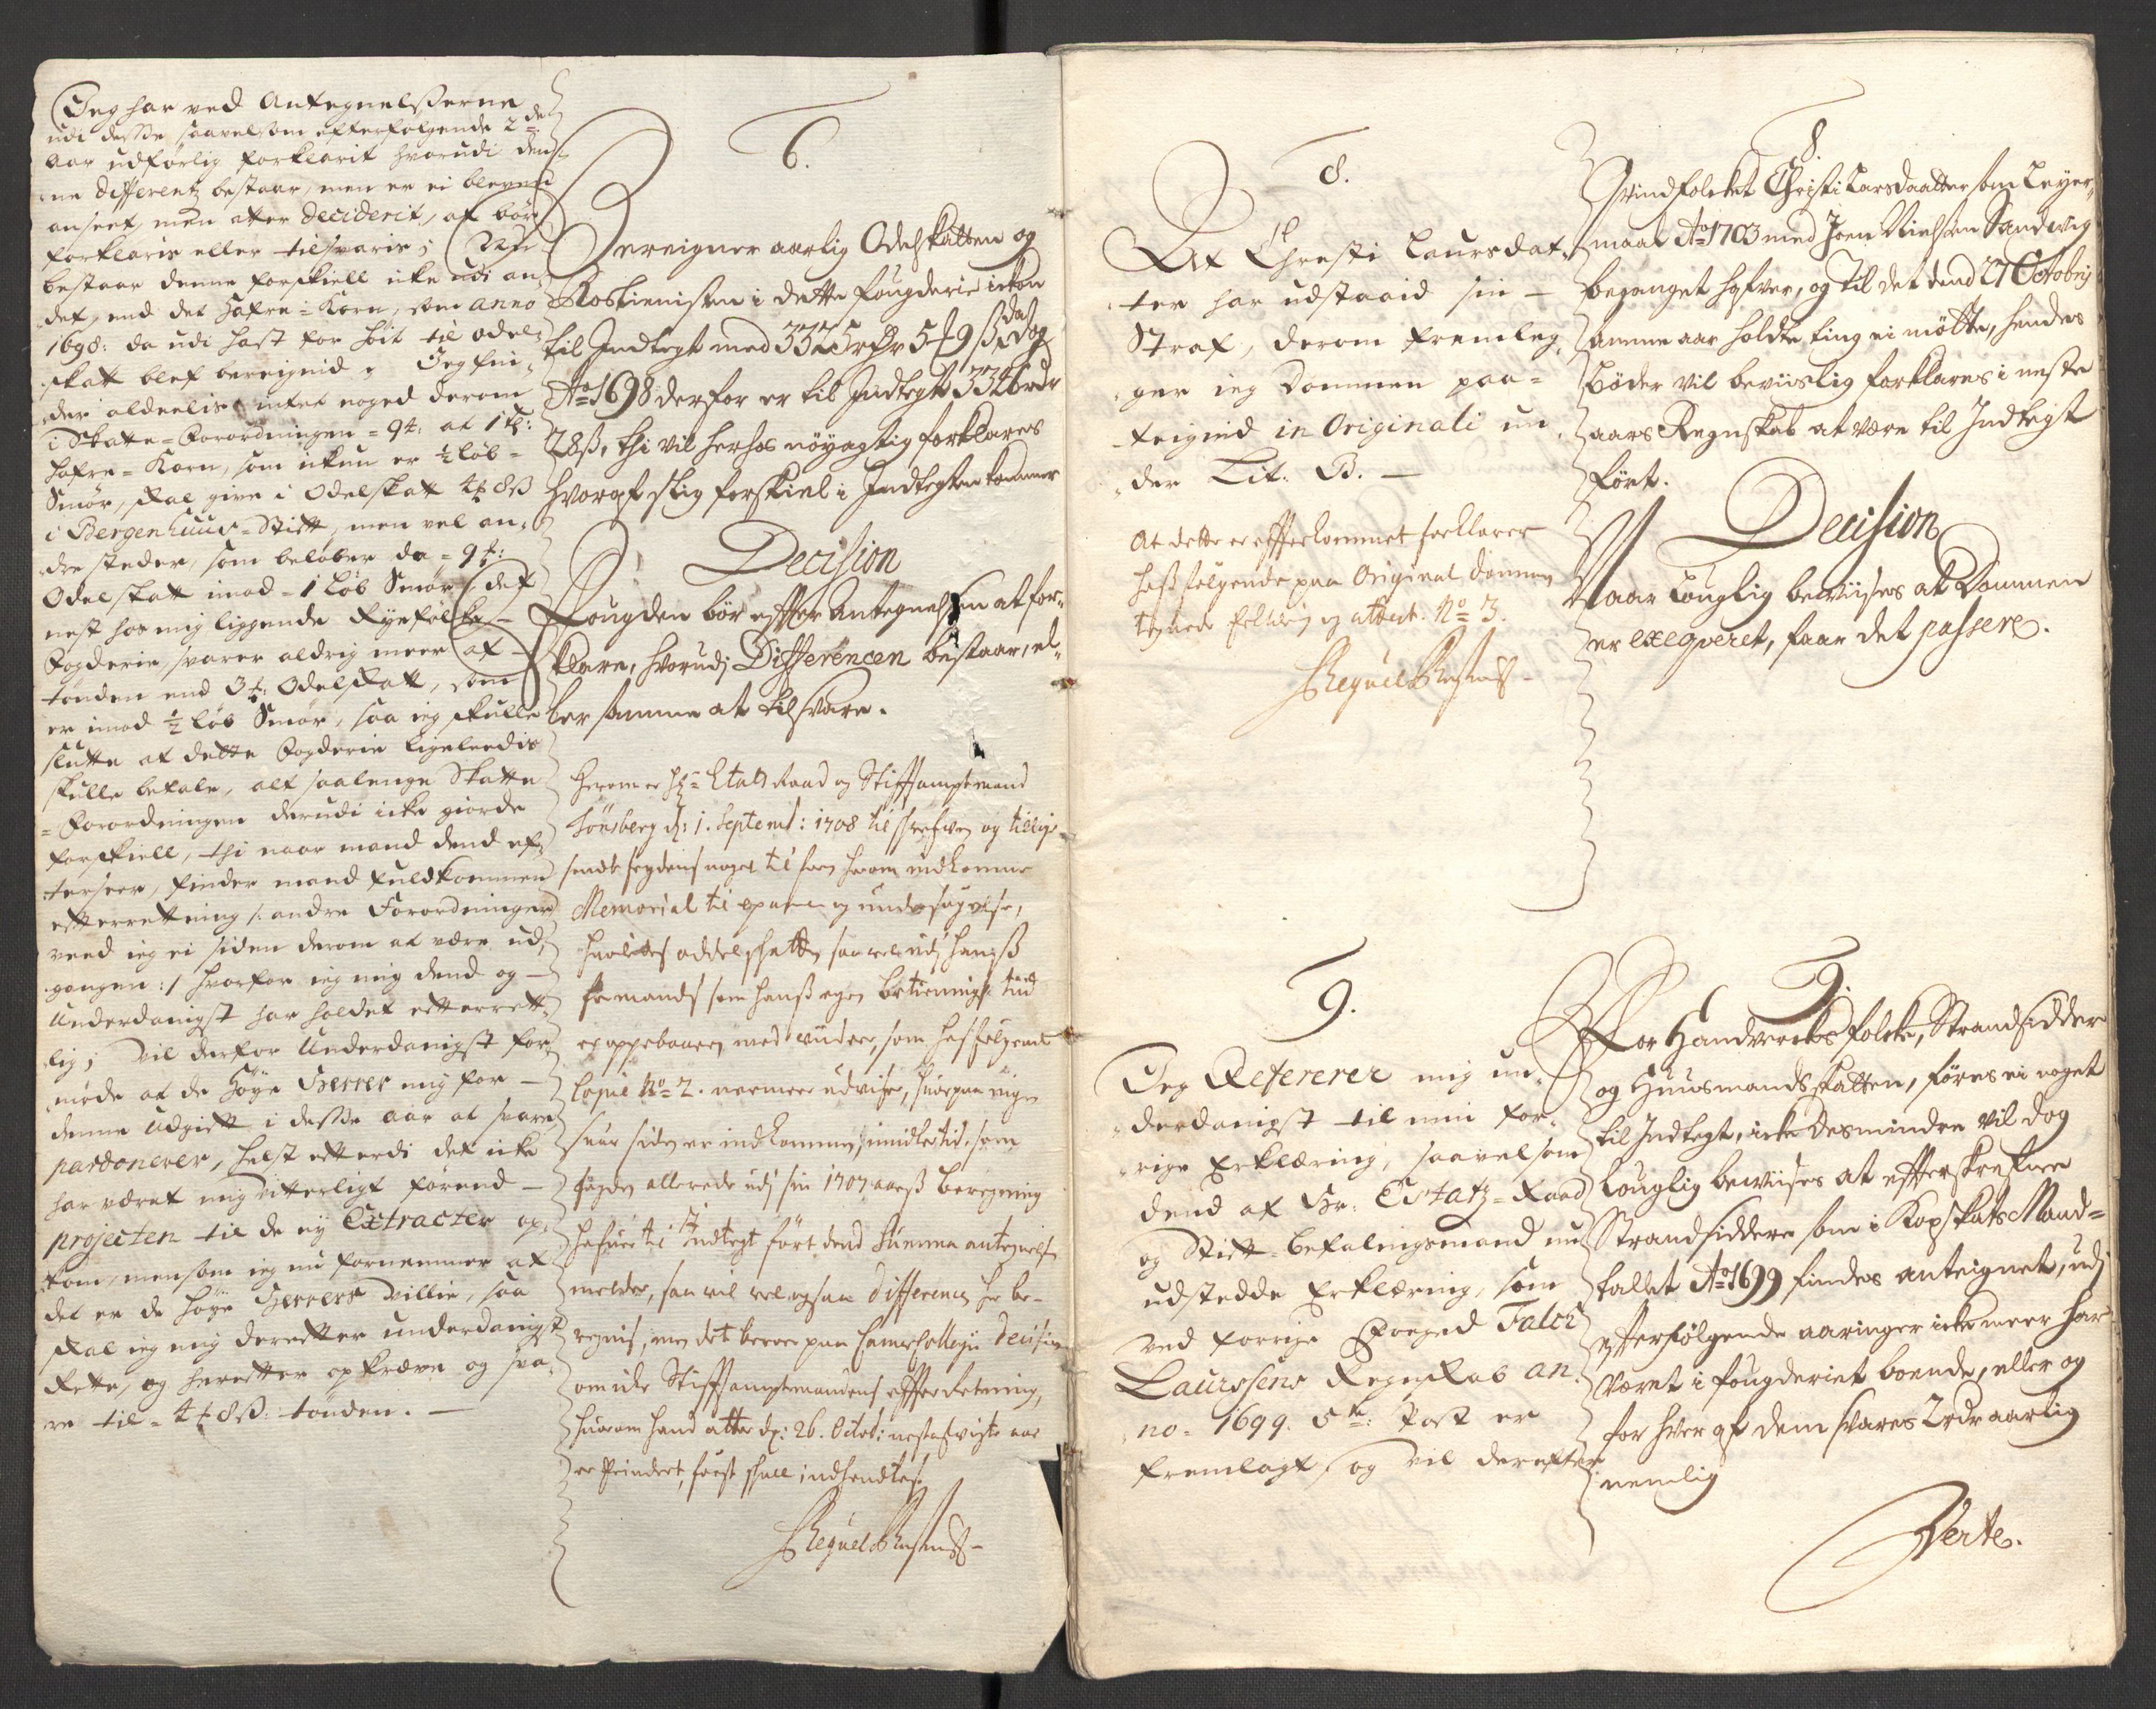 Jeg har ved Antegnelsserne
udi desse saavelsom efterfølgende 2de
aar udførlig forklarit hvorudi den-
ne differentz bestaar, men er ei bleven
anseet, men atter deciderit, at bør
forklaris eller tilsvaris;
bestaar denne forskiell icke udi an-
det, end det Hafre-Korn, som anno
1698: da udi hast for høit til odel-
skatt blef bereignid, Jeg fin-
der aldeelis intet noged derom
i Skatte-Forordningen
Hafre-Korn, som ickun er ½ løb
Smør, skal give i Odelskatt 4 ß
i Bergenhuus-Stift, men vel an-
dre steder, som beløber da
Odelskatt imod 1 løb Smør, det
nest hos mig liggende Ryefølke
Fogderie, svarer aldrig meer af
tønden end Odelskatt, som
er imod ½ løb Smør, saa ieg skulle
slutte at dette Fogderie ligeleedis
skulle betale, alt saalenge Skatte
Forordningen derudi icke giorde
forskiell, thi naar mand dend ef-
terseer, finder mand fuldkommen
efterrettning /: andre Forordninger
veed ieg ei siden derom at være ud-
gangen :/ hvorfor ieg mig dend og
Underdanigst har holdet efterrett-
lig; Vil derfor Underdanigst for-
mode at de Høye Herrer mig for
denne Udgift i desse aar at svare
pardonerer, helst efterdi det icke
har været mig vitterligt førend
projecten til de ny Extracter op-
kom, mensom ieg nu fornemmer at
det er de høye Herrers villie, saa
skal ieg mig derefter underdanigst
rette, og herefter opkræve og sva-
re til 4 ß 8 ß: tønden.
6.
Bereigner aarlig Odelskatten og
Rostienisten i dette fougderie ickon
til Indtegt med 3325 rdr 5 9 ß, da dog
Ao 1698 derfor er til Indtegt 3326 rdr
28 ß, thi vil herhos nøyagtig forklares
hvoraf slig forskiel i Indtegten kommer
Decision
Fougden bør effter Antegnelsen at for-
klare, hvorudj Differencen bestaar, el-
ler samme at tilsvare.
Herom er Hr Etats Raad og Stiftamptmand
Tønsberg d: 1. Septemb: 1708 tilskrefven og tillige
sendt fogdens noget til forn herom indkomne
Memorial til examen og undersøgelse,
hvorledes oddelskatten saavel udj hanß
formands som hanß egen betienings tiid
er oppebaaren med videre, som hosfølgende
Copie No 2. nærmere udviser, hvorpaa ingen
svar siden er indkommen, imidlertid, som
fogden allerede udj sin 1707 aarß beregning
hafuer til Indtegt ført dend Summa antegnelsen
melder, saa vil vel ogsaa differencen her be-
regnis, men det beroer paa Camercollegii decision
om icke Stiftamptmandens efterretning,
hvorom hand atter d: 26. Octob: nestafvigte aar
er erindret, først skull indhendtes.
8.
At Chresti Laursdat-
ter har udstaaid sin
Straf, derom fremleg-
ger ieg Dommen paa-
teignid in Originali un-
der Lit. B.
At dette er efterkommet forklarer
hoßfølgende paa Original dommen
tegnede og attest. No 3.
8.
Qvindfolcket Christi Larsdaatter som Leyer-
maal Ao 1703 med Joen Nielsøn Sandvig
beganget hafver, og til det dend 27 Octobris
samme aar holdte ting ei mødte, hendes
bøder vil beviislig forklares i neste
aars Regnskab at være til Indtegt
ført.
Decision
Naar louglig bevises at Dommen
er exeqveret, faar det passere.
9.
Jeg Refererer mig un-
derdanigst til min for-
rige Erklæring, saavelsom
dend af Hr. Etatz-Raad
og Stift-befalingsmand nu
udstedde Erklæring, som
ved forrige Foeged Falck
Laurssens Regnskab an-
no 1699. 5te: Post er
fremlagt, og vil derefter
9.
For Handverksfolcke, Strandsidder
og Huusmandsskatten, føres ei noget
til Indtegt, icke desminder vil dog
louglig bevises at effterskrefne
Strandsiddere som i Kopskats Mand-
tallet Ao 1699 findes anteignet, udj
effterfølgende aaringer icke meer har
været i fougderiet boende, eller og
for hver af dem svares 2 rdr aarlig
nemlig
Verte.